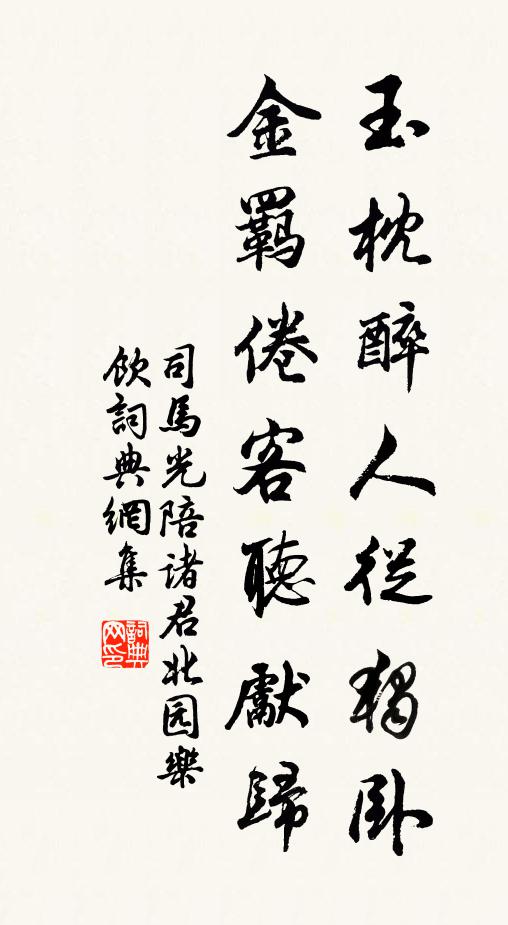 玉枕醉人従獨卧
金羈倦客聽獻歸
司馬光陪諸君北园樂
飲詞典網集
詞典
网印